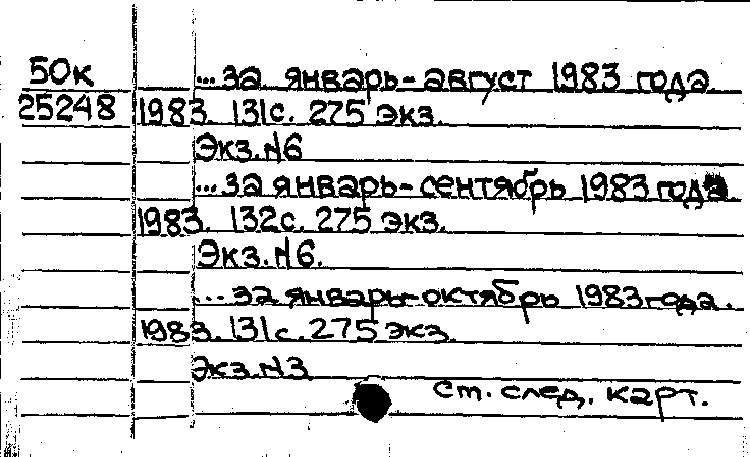 50к ...за январь-август 1983 года.
25248 1983. 131с. 275 экз.
Экз.N6
...за январь-сентябрь 1983 года
1983. 132с. 275 экз.
Экз.N6.
...за январь-октябрь 1983 года.
1983. 131с. 275 экз.
Экз.N3
см. след. карт.